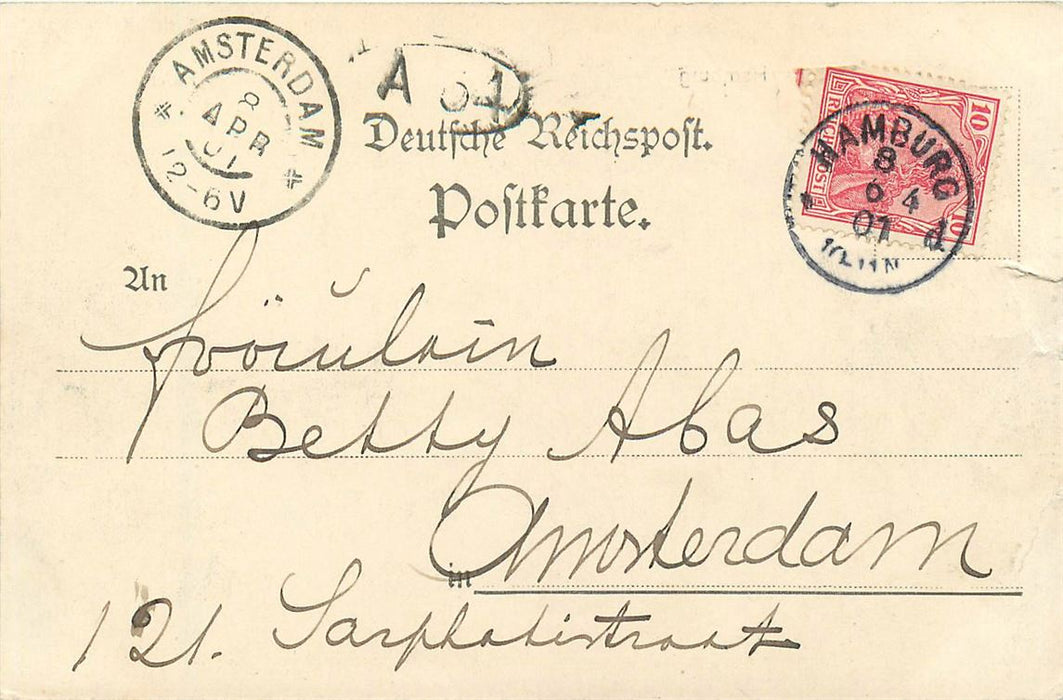 AMSTERDAM
8
APR
01
12-6V
A
Deutsche Reichspost.
Postkarte.
10
REICHSPOST
10
HAMBURG
8
6 4
01
d.
An
Fräulein
Betty Abas
in Amsterdam
121. Sarphatistraat